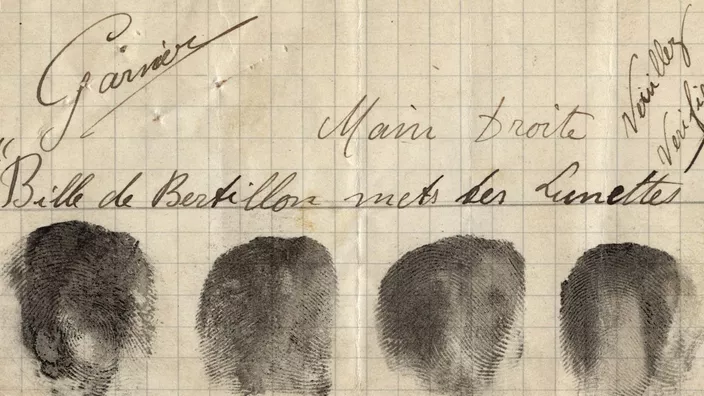 Garnier
Main Droite
Veuillez
Vérifie
"Bille de Bertillon mets tes Lunettes